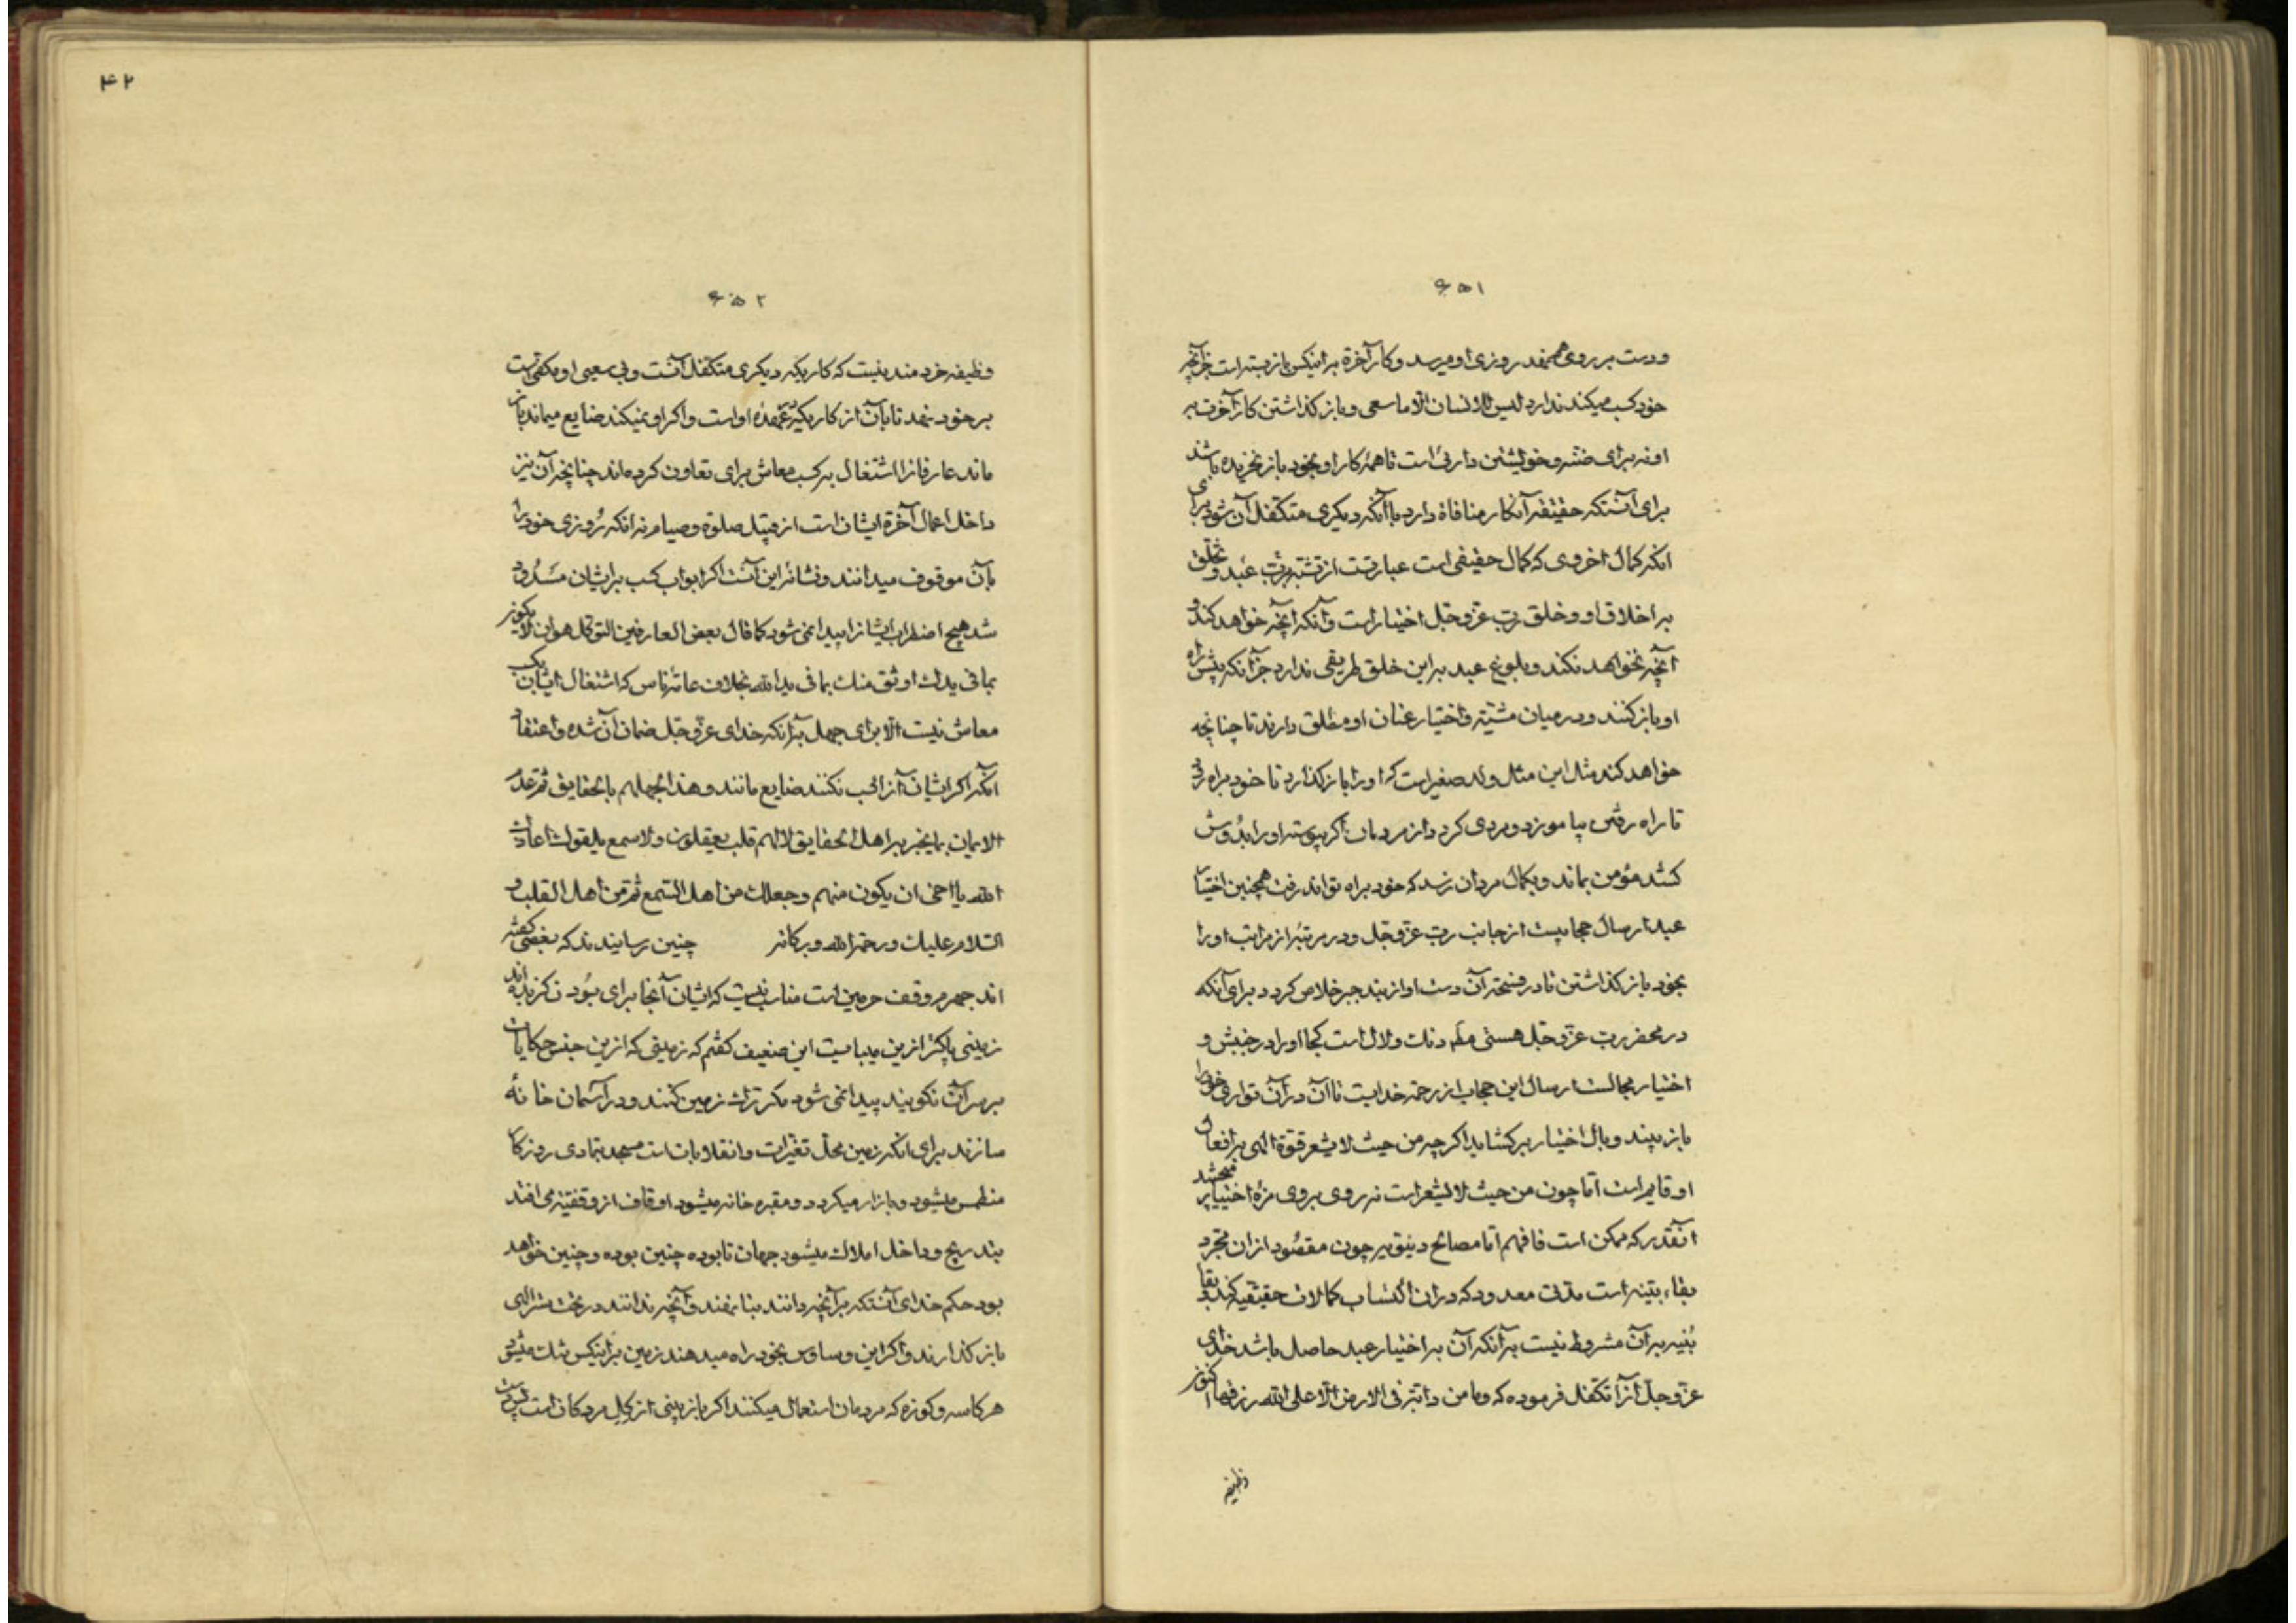 ۶۵۱
ودست بر روی همنهد روزی او میرسد وکار آخرة براینکس باز بسته است جز آنچه
خود کسب میکند ندارد لیس للانسان الا ما سعی و باز کذاشتن کار آخرت بر
او نه برای خویشتن داریست تا همهٔ کار او بخود باز نخریده باشد
برای آنستکه حقیقة آنکار منافاة دارد با آنکه دیکری متکفل آن شود برای
انکه کمال اخروی که کمال حقیقی است عبارتست از تشبه برب عبد و تخلق
بر اخلاق او و خلق رب عز وجل اختیار است و آنکه آنچه خواهد کند و
آنچه نخواهد نکند و بلوغ عبد بر این خلق طریقی ندارد جز آنکه پیش راه
او باز کنند و در میان مشیته و اختیار عنان او مطلق دارند تا چنانچه
خواهد کند مثل این مثل ولد صغیر است که او را باز کذارد تا خود براه رود
تا راه رفتن بیاموزد و مردی کردد از مردمان اکر پیوسته او را بدوش
کشد مؤمن بماند و بکمال مردان نرسد که خود براه تواند رفت همچنین اختیار
عبد ارسال حجابیست از جانب رب عز وجل و در مرتبهٔ از مراتب او را
بخود باز کذاشتن تا در فسحة آن دست او از بند جبر خلاص کردد برای آنکه
در محضر رب عز وجل هستی ملم دنک ولال است کجا او را در جنبش و
اختیار مجالست ارسال این حجاب از رحمة خدایست تا آن در آن تواری خود را
باز بیند و بال اختیار برکشاید اکرچه من حیث لا یشعر قوة الهی بر افعال
او قایم است اما چون من حیث لا یشعر است نه روی بروی مزهٔ اختیار میچشد
آنقدر که ممکن است فافهم اما مصالح دنیویه چون مقصود ازان مجرد
بقاء بنیه است مدتی معدود که دران اکتساب کمالات حقیقیه کند و بقا
بنیه بر آن مشروط نیست بر آنکه آن بر اختیار عبد حاصل باشد خدای
عز وجل آنرا تکفل فرموده که وما من دابة فی الارض الا علی الله رزقها اکنون
وظیفه
۴۲
۶۵۲
وظیفه خردمند نیست که کاریکه دیکری متکفل آنست و بی سعی او مکفی است
بر خود نهد تا بآن از کاریکه بر عهدهٔ او است و اکر او نمیکند ضایع میماند باز
ماند عارفانرا اشتغال بر کسب معاش برای تعاون کرده‌اند چنانچه آن نیز
داخل اعمال آخرة ایشان است از قبیل صلوة و صیام نه انکه روزی خود را
بآن موقوف میدانند و نشانهٔ این آنست اکر ابواب کسب بر ایشان مسدود
شد هیچ اضطراب ایشانرا پیدا نمی شود کما قال بعض العارفین التوکل هو ان لا یکون
بما فی یدک اوثق منک بما فی ید الله بخلاف عامهٔ ناس که اشتغال ایشان بکسب
معاش نیست الا برای جهل بر آنکه خدای عز وجل ضمان آن شده و اعتقاد
آنکه اکر ایشان آنرا کسب نکنند ضایع مانند و هذا لجهلهم بالحقایق ثم عدم
الایمان بما یخبر به اهل الحقایق لا لهم قلب یعقلون ولا سمع یلقون اعاذک
الله یا اخی ان یکون منهم وجعلک من اهل السمع ثم من اهل القلب و
السلام علیک ورحمة الله وبرکاته چنین رسانیدند که بعضی کفته
اند جهرم وقف حرمین است مناسب نیست که ایشان آنجا برای بودن کزیده اند
زمینی پاکتر ازین میبایست این ضعیف کفتم که زمینی که ازین جنس حکایات
بر سر آن نکویند پیدا نمی شود مکر ترک زمین کنند و در آسمان خانهٔ
سازند برای انکه زمین محل تغیرات و انقلابات است مسجد بتمادی روزکار
منطمس میشود و بازار میکردد و مقبره خانه میشود اوقاف از وقفیه می افتد
بتدریج و داخل املاک میشود جهان تا بوده چنین بوده و چنین خواهد
بود حکم خدای آنستکه بر آنچه دانند بنا نهند و آنچه ندانند در تحت ستر الهی
باز کذارند و اکر این وساوس بخود راه میدهند زمین بر اینکس تنک میشود
هر کاسه و کوزه که مردمان استعمال میکنند اکر باز بینی از کل مردکان است